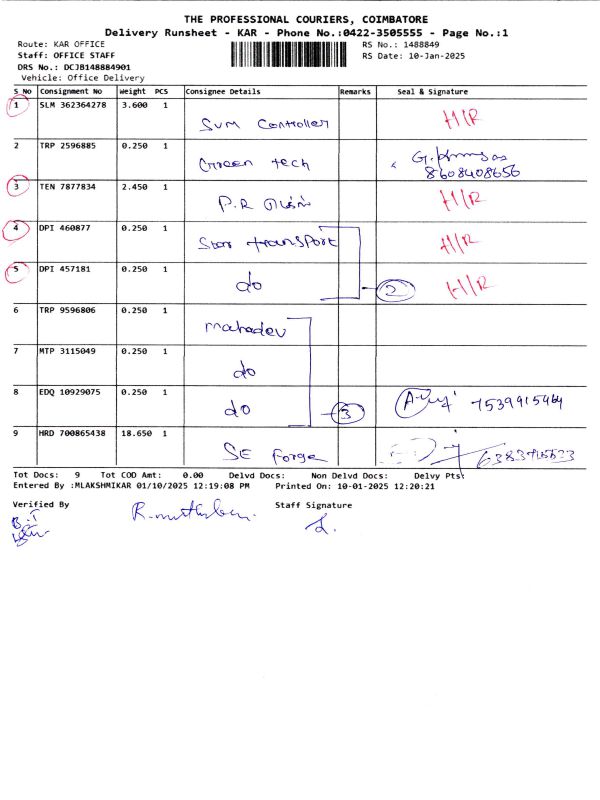 THE PROFESSIONAL COURIERS, COIMBATORE
Delivery Runsheet - KAR - Phone No.:0422-3505555 - Page No.:1
Route: KAR OFFICE
RS No.: 1488849
Staff: OFFICE STAFF
RS Date: 10-Jan-2025
DRS No.: DCJB148884901
Vehicle: Office Delivery
S_No Consignment No Weight PCS Consignee Details Remarks Seal & Signature
1 SLM 362364278 3.600 1 SVM Controller H/R
2 TRP 2596885 0.250 1 Green tech 8608408656
3 TEN 7877834 2.450 1 P.R H/R
4 DPI 460877 0.250 1 Star transport H/R
5 DPI 457181 0.250 1 do 2 H/R
6 TRP 9596806 0.250 1 mahadev
7 MTP 3115049 0.250 1 do
8 EDQ 10929075 0.250 1 do 3
9 HRD 700865438 18.650 1 SE Forge
Tot Docs: 9 Tot COD Amt: 0.00 Delvd Docs: Non Delvd Docs: Delvy Pts:
Entered By :MLAKSHMIKAR 01/10/2025 12:19:08 PM Printed On: 10-01-2025 12:20:21
Verified By Staff Signature